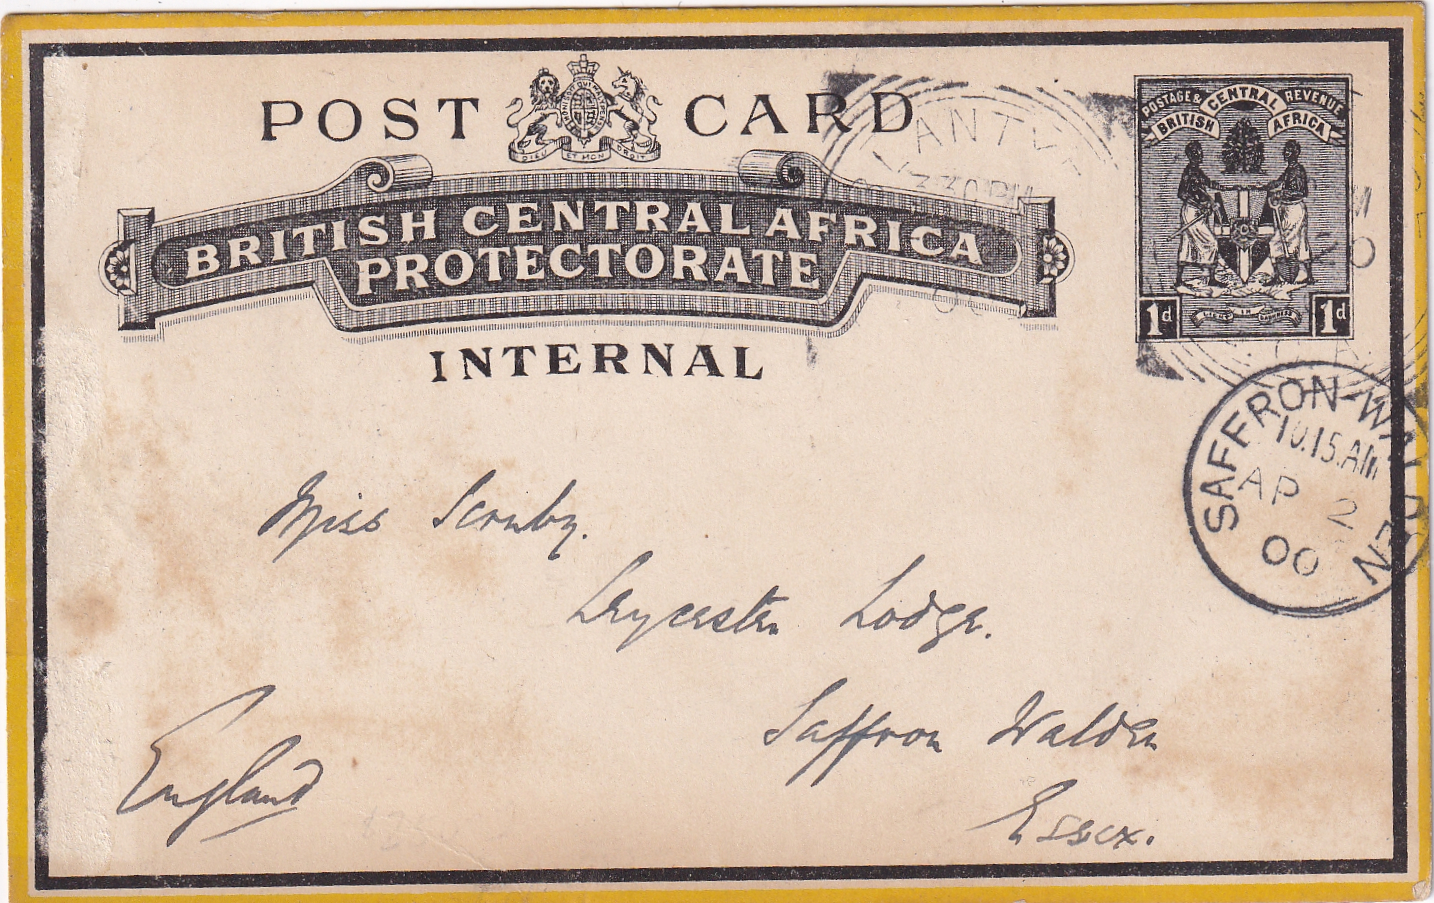 POST CARD
DIEU ET MON DROIT
BRITISH CENTRAL AFRICA
PROTECTORATE
INTERNAL
POSTAGE & REVENUE
BRITISH CENTRAL AFRICA
1d 1d
3.30 PM
SAFFRON-WALDEN
10.15.AM
AP 2
00
Miss Scruby.
Leycester Lodge.
Saffron Walden
Essex.
England